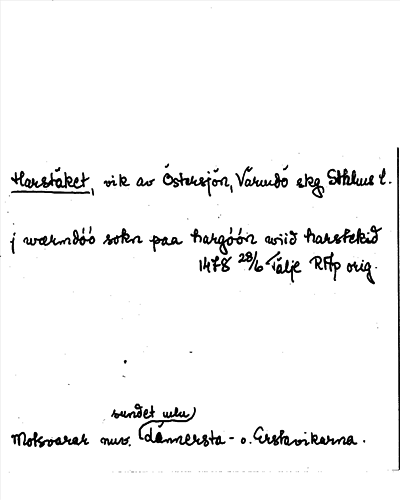 Harstäket, vik av Östersjön, Värmdö skg Sthlms l.
j wærmdöö sokn paa hargöön wiid harstekid
1478 28/6 Tälje RAp orig.
sundet mlm
Motsvarar nuv. Lännersta- o. Erstavikarna.